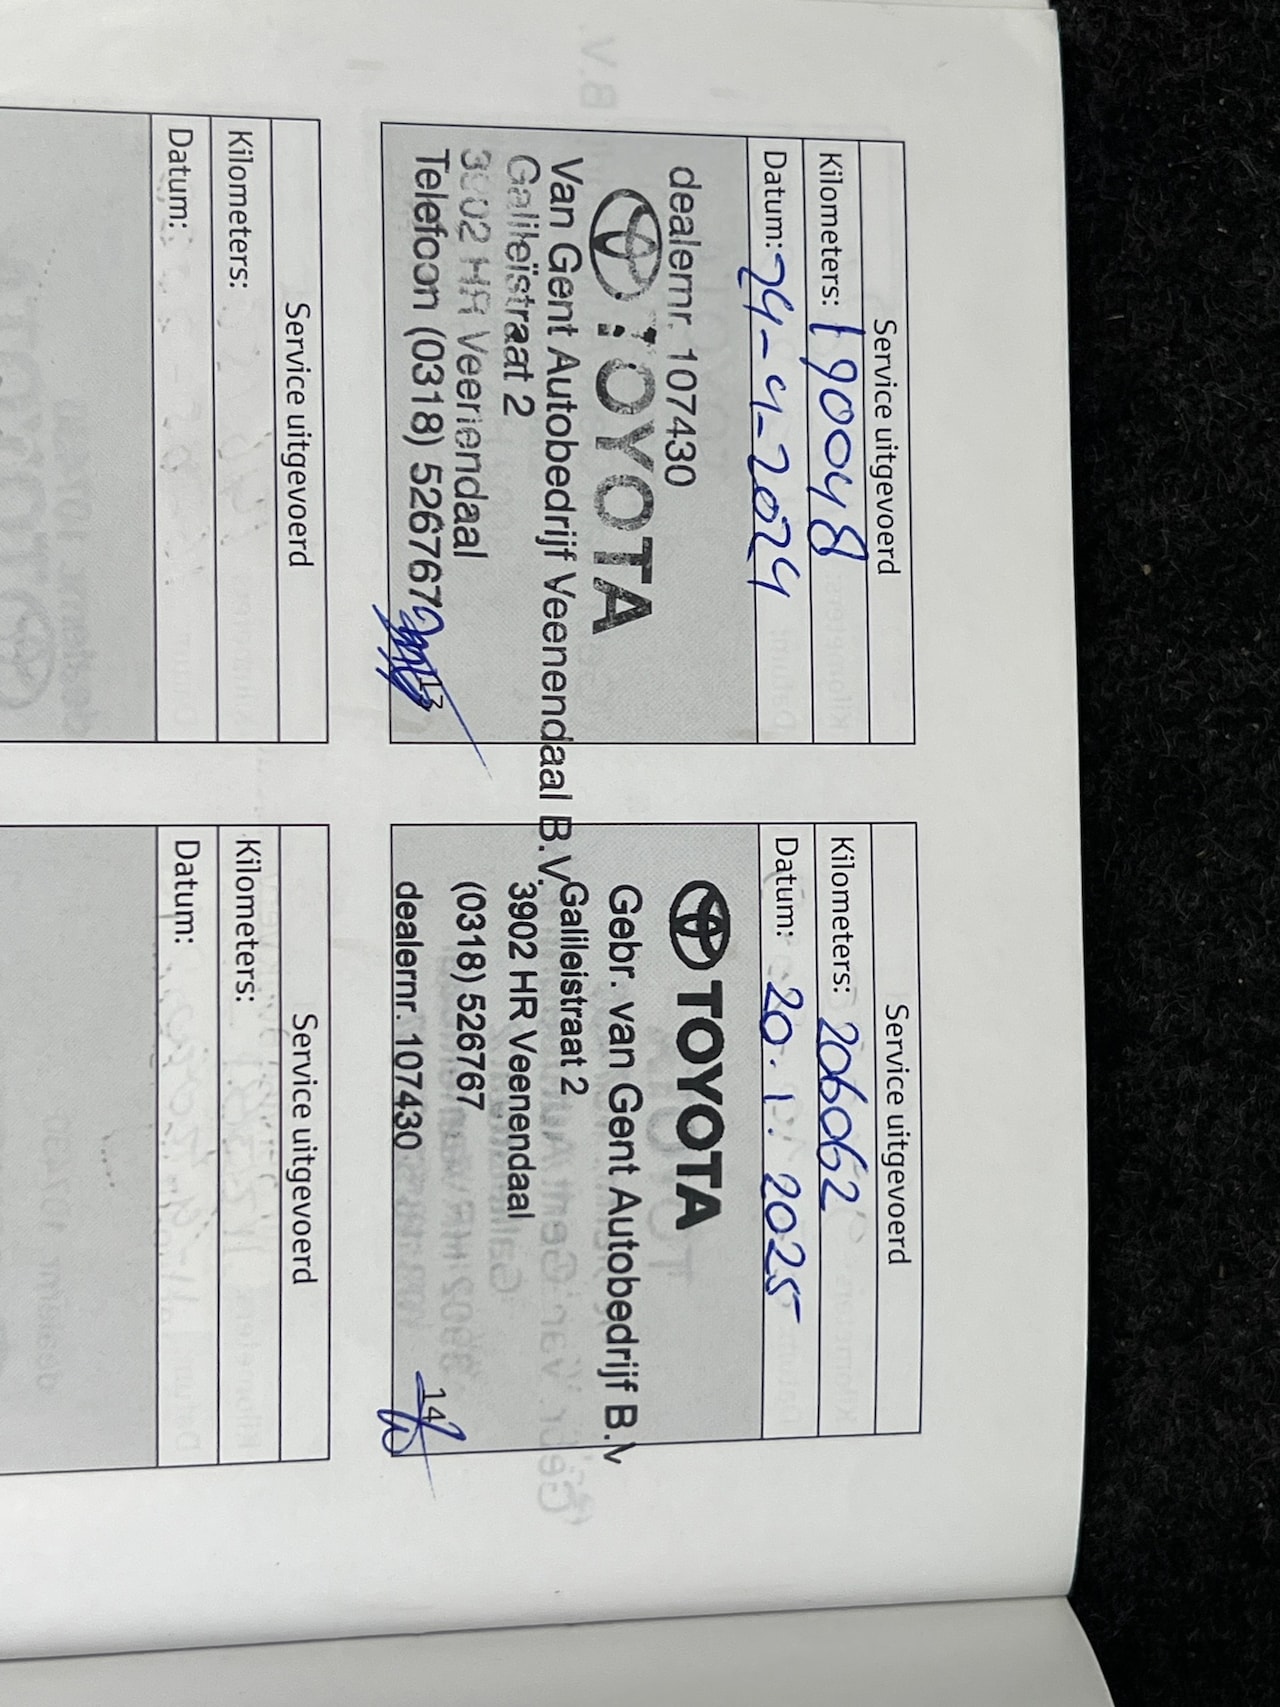 Service uitgevoerd
Kilometers: 190048
Datum: 24-4-2024
dealernr. 107430
TOYOTA
Van Gent Autobedrijf Veenendaal B.V.
Galileïstraat 2
3902 HR Veenendaal
Telefoon (0318) 526767
13
Service uitgevoerd
Kilometers: 206062
Datum: 20.1.2025
TOYOTA
Gebr. van Gent Autobedrijf B.V
Galileistraat 2
3902 HR Veenendaal
(0318) 526767
dealernr. 107430
14
Service uitgevoerd
Kilometers:
Datum:
Service uitgevoerd
Kilometers:
Datum: